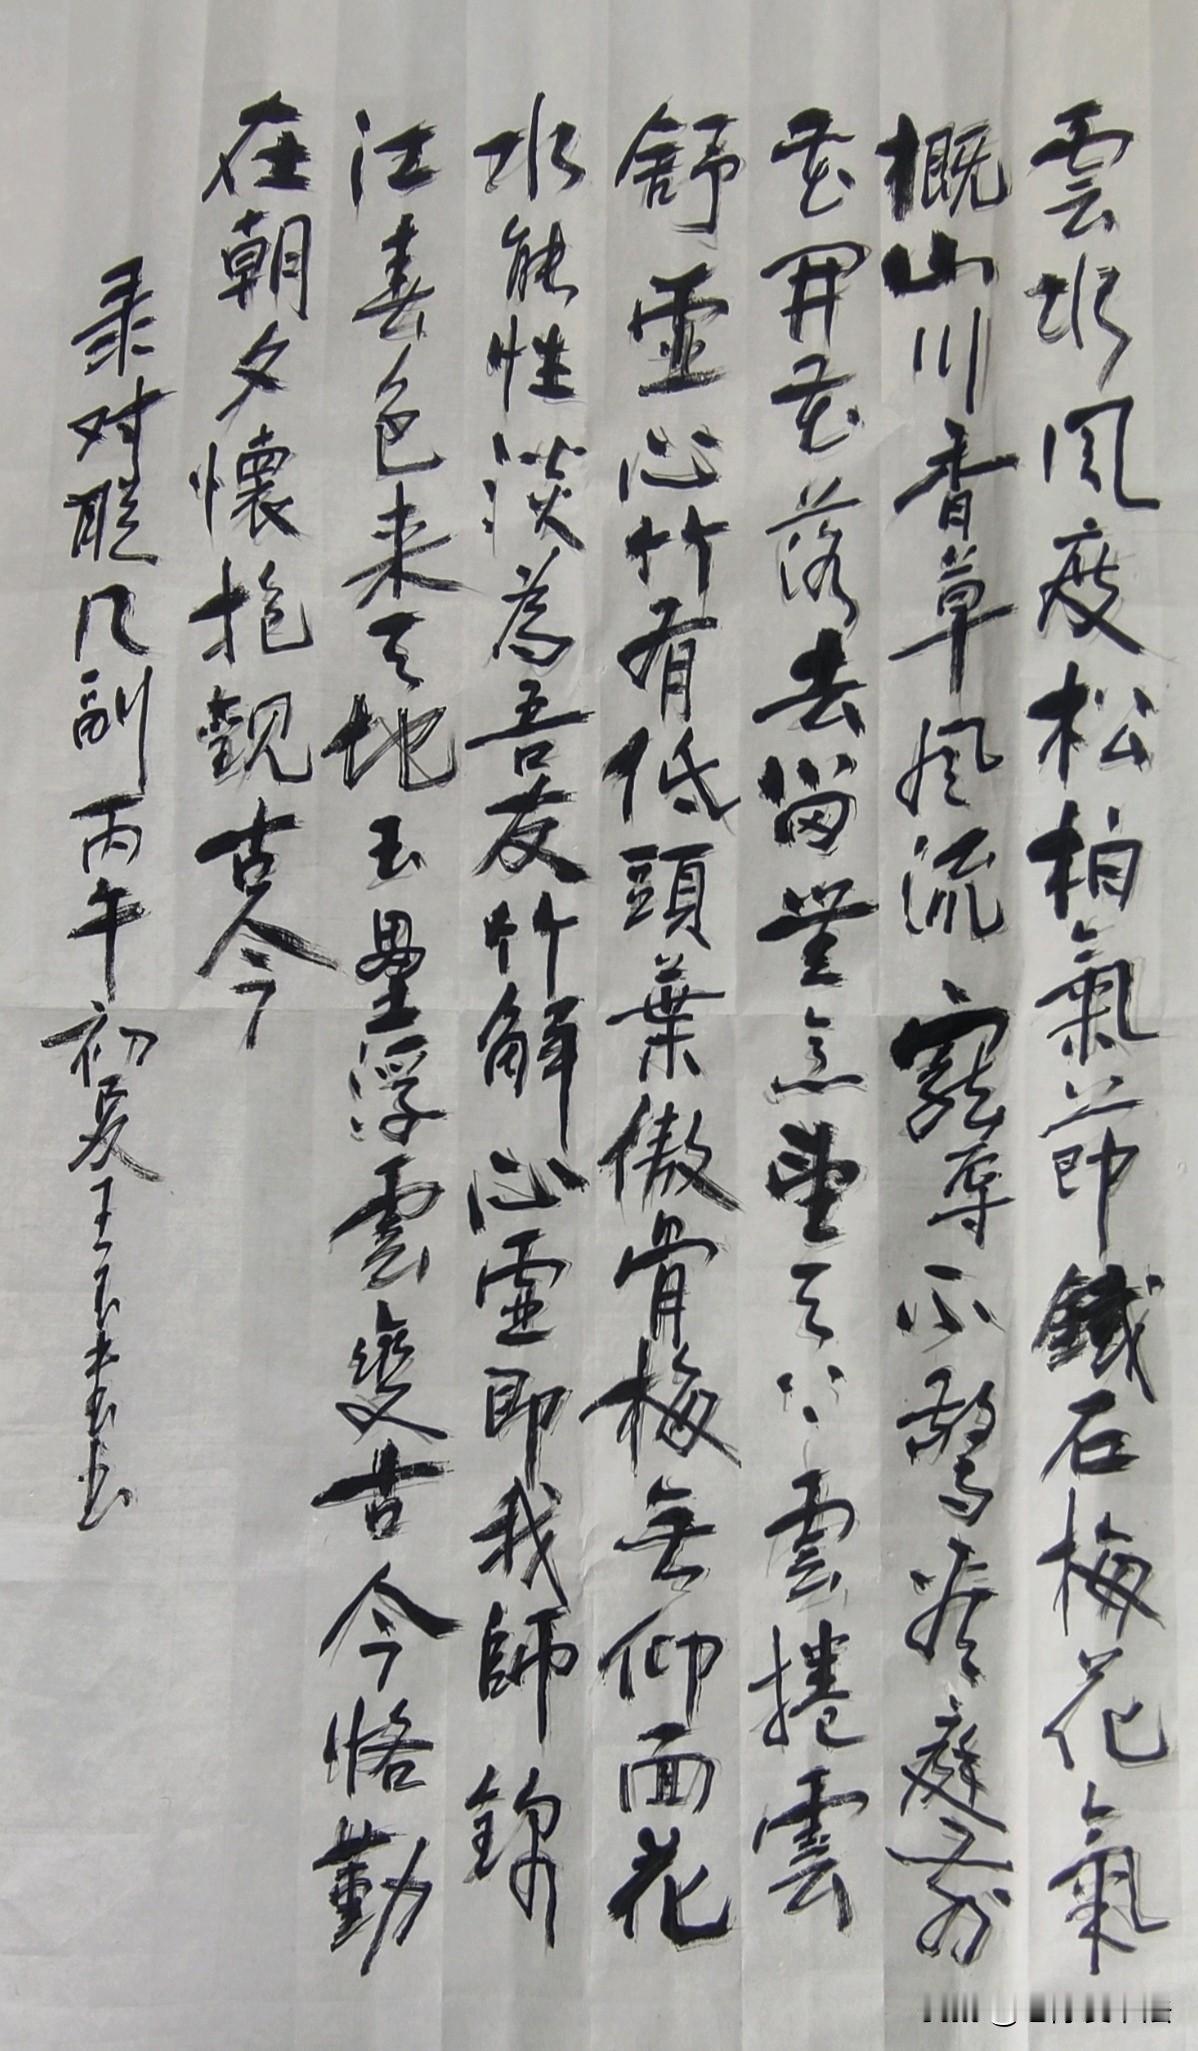 雲水風度松柏氣節鐵石梅花氣
概山川香草風流寵辱不驚看庭前
花開花落去留無意望天外雲捲雲
舒虛心竹有低頭葉傲骨梅無仰面花
水能性淡為吾友竹解心虛即我師錦
江春色来天地玉壘浮雲變古今恪勤
在朝夕懷抱觀古今
录对联几副丙午初夏王